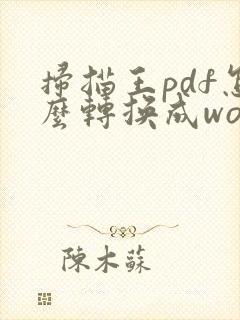 掃描王pdf怎
麼轉換成wo
陳木蘇